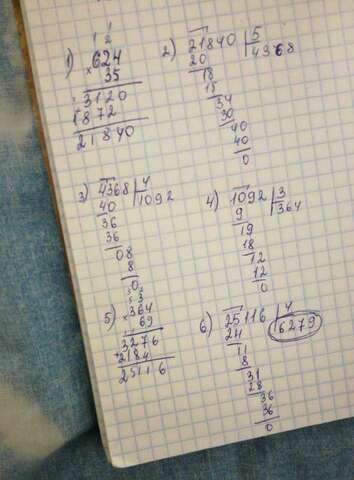 1) 1 1
1 2
624
× 35
3120
1872
21840
2) 21840 | 5
20 4368
18
15
34
30
40
40
0
3) 4368 | 4
40 1092
36
36
08
8
0
4) 1092 | 3
9 364
19
18
12
12
0
5) 5 3
3
× 364
69
3276
+ 2184
25116
6) 25116 | 4
24 6279
11
8
31
28
36
36
0